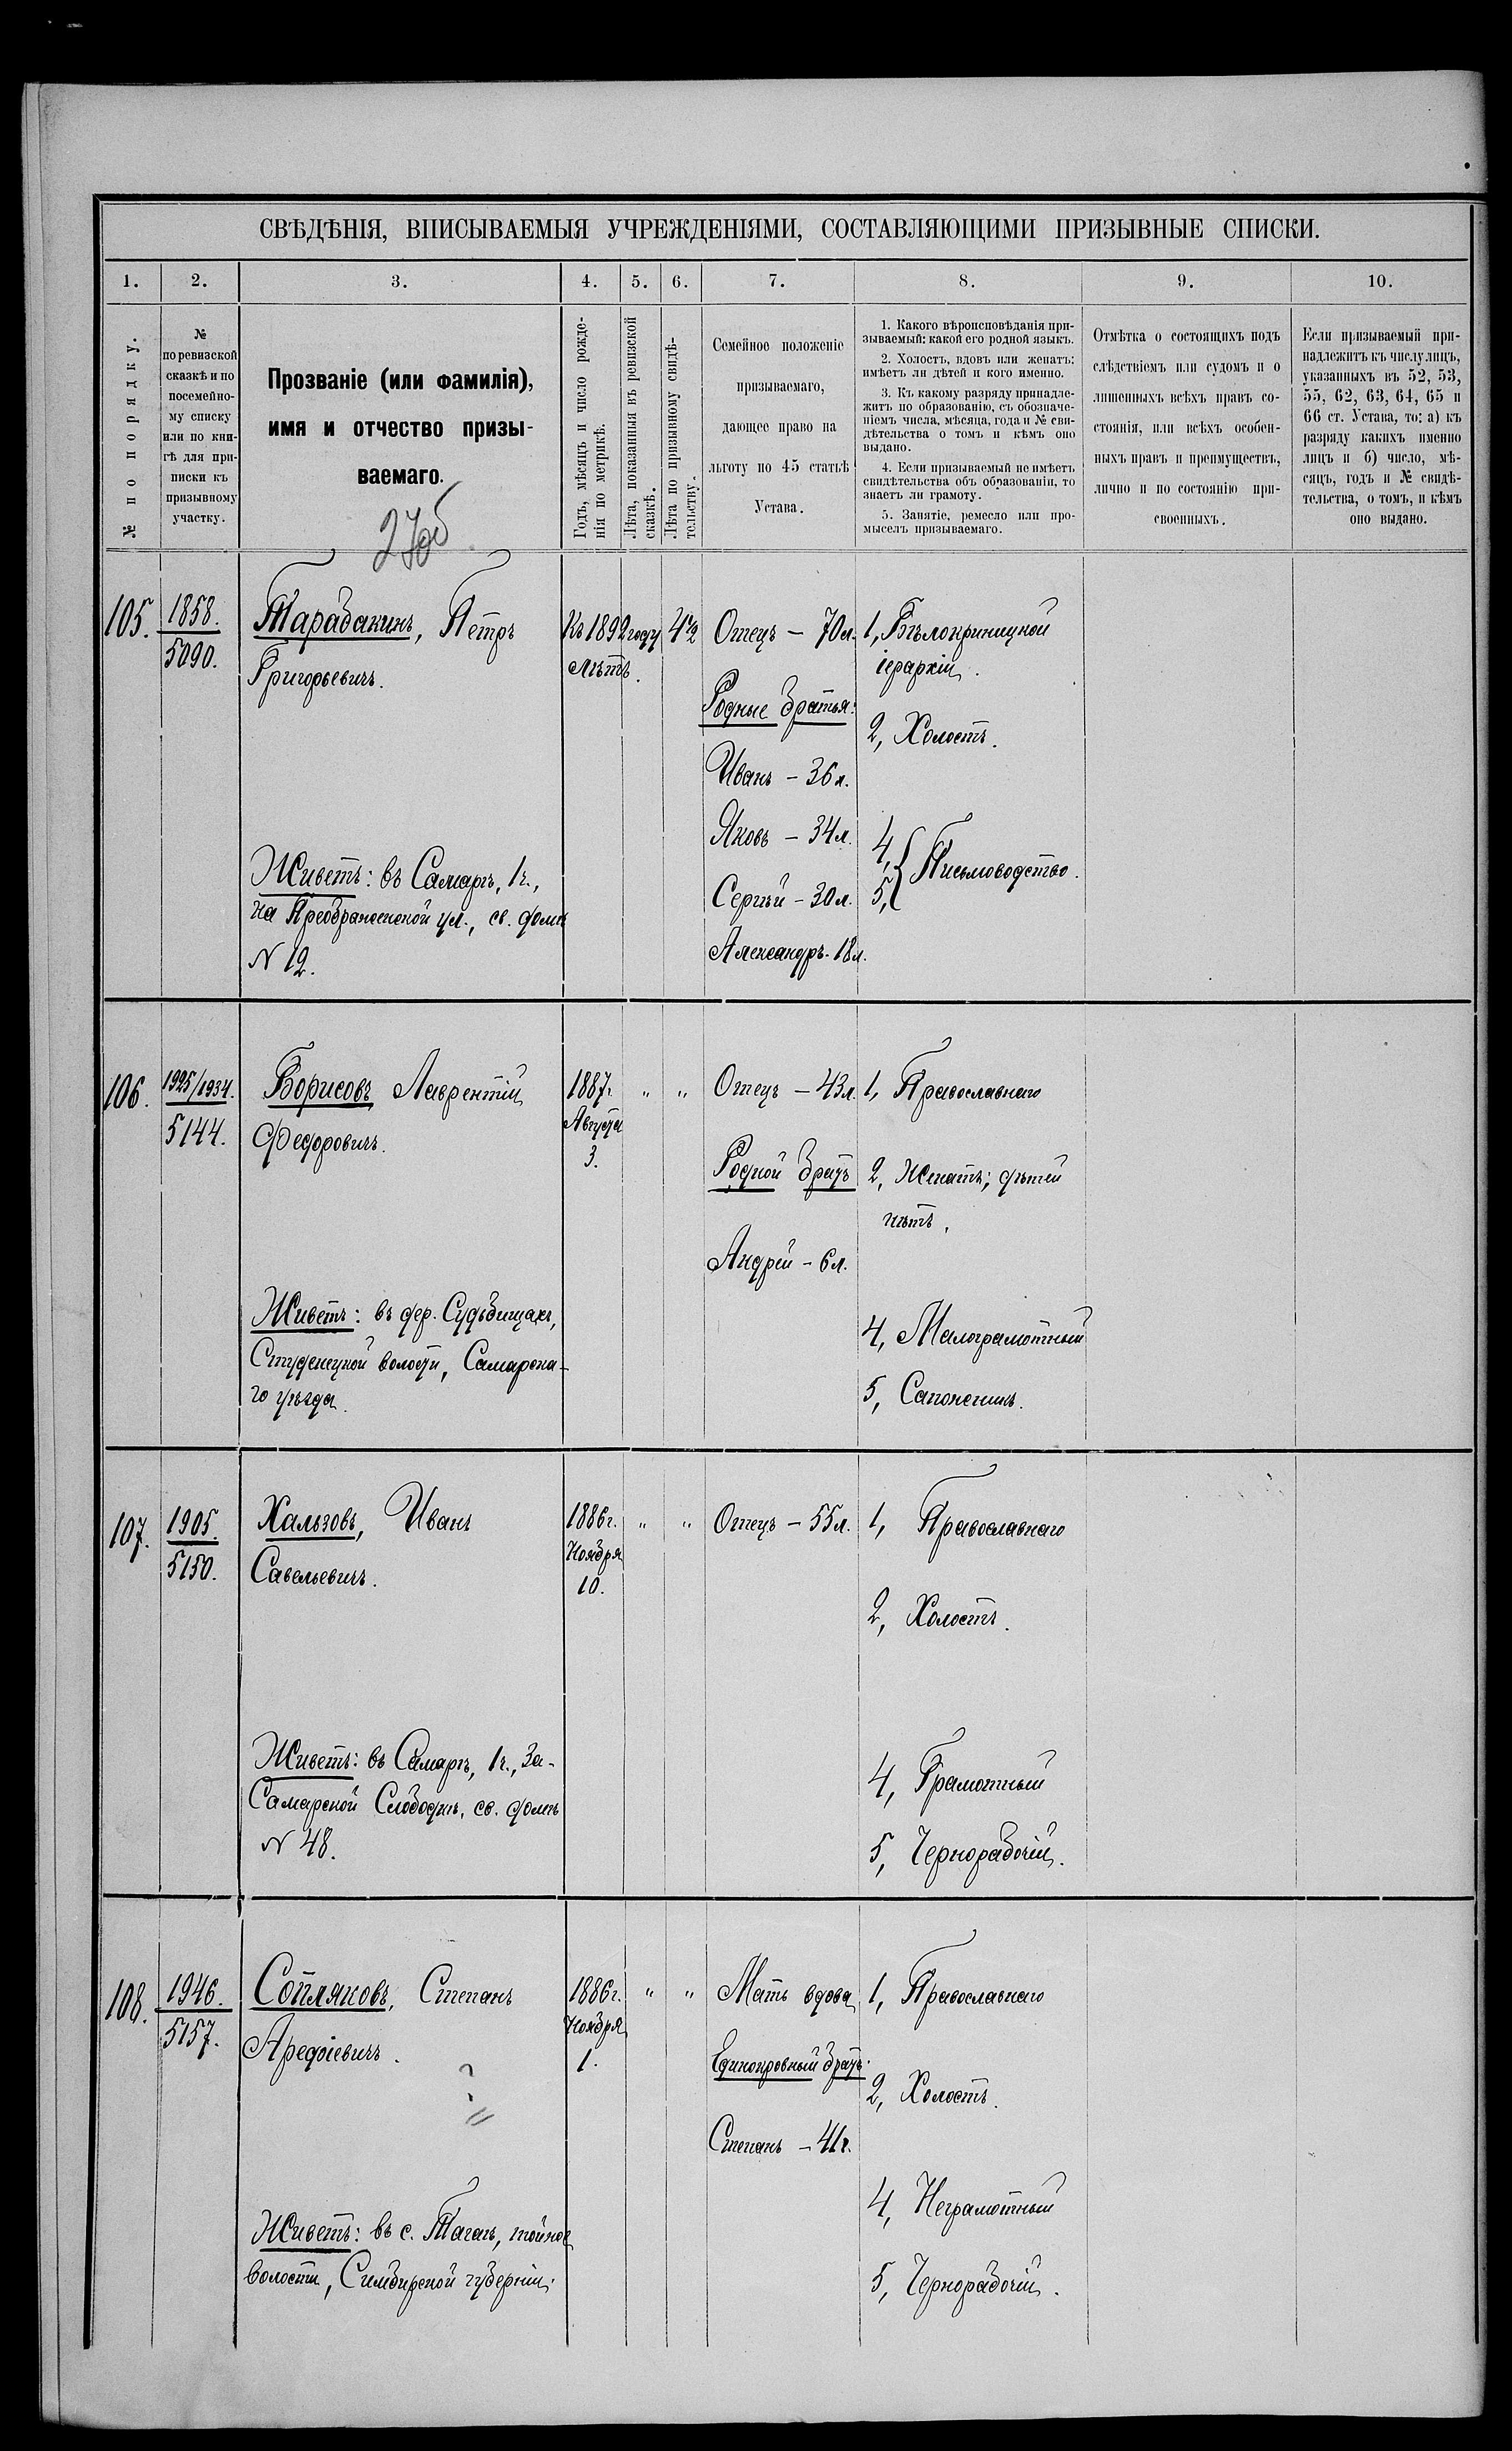 СВѢДѢНІЯ, ВПИСЫВАЕМЫЯ УЧРЕЖДЕНІЯМИ, СОСТАВЛЯЮЩИМИ ПРИЗЫВНЫЕ СПИСКИ.
1. 2. 3. 4. 5. 6. 7. 8. 9. 10.
№ по порядку.
№
по ревизской
сказкѣ и по
посемейно-
му списку
или по кни-
гѣ для при-
писки къ
призывному
участку.
Прозваніе (или фамилія),
имя и отчество призы-
ваемаго.
Годъ, мѣсяцъ и число рожде-
нія по метрикѣ.
Лѣта, показанныя въ ревизской
сказкѣ.
Лѣта по призывному свидѣ-
тельству.
Семейное положеніе
призываемаго,
дающее право на
льготу по 45 статьѣ
Устава.
1. Какого вѣроисповѣданія при-
зываемый; какой его родной языкъ.
2. Холостъ, вдовъ или женатъ;
имѣетъ ли дѣтей и кого именно.
3. Къ какому разряду принадле-
житъ по образованію, съ обозначе-
ніемъ числа, мѣсяца, года и № сви-
дѣтельства о томъ и кѣмъ оно
выдано.
4. Если призываемый не имѣетъ
свидѣтельства объ образованіи, то
знаетъ ли грамоту.
5. Занятіе, ремесло или про-
мыселъ призываемаго.
Отмѣтка о состоящихъ подъ
слѣдствіемъ или судомъ и о
лишенныхъ всѣхъ правъ со-
стоянія, или всѣхъ особен-
ныхъ правъ и преимуществъ,
лично и по состоянію при-
своенныхъ.
Если призываемый при-
надлежитъ къ числу лицъ,
указанныхъ въ 52, 53,
55, 62, 63, 64, 65 и
66 ст. Устава, то: а) къ
разряду какихъ именно
лицъ и б) число, мѣ-
сяцъ, годъ и № свидѣ-
тельства, о томъ, и кѣмъ
оно выдано.
105.
1858.
5090.
Тарабакинъ, Петръ
Григорьевичъ.
Живетъ: въ Самарѣ, 1ч.,
на Преображенской ул., св. домѣ
N 12.
Къ 1892 году 4½
лѣтъ.
Отецъ – 70л.
Родные братья:
Иванъ – 36 л.
Яковъ – 34 л.
Сергѣй – 30 л.
Александръ - 18 л.
1, Бѣлокриницкой
іерархіи.
2, Холостъ.
4,
5,
Письмоводство.
106.
1925/1934.
5144.
Борисовъ, Лаврентій
Федоровичъ.
Живетъ: въ дер. Судьбищахъ,
Студенецкой волости, Самарска-
го уѣзда.
1887г.
Августа
3.
" "
Отецъ – 43л.
Родной братъ
Андрей – 6 л.
1, Православнаго
2, Женатъ; дѣтей
нѣтъ.
4, Малограмотный
5, Сапожникъ.
107.
1905.
5150.
Хальзовъ, Иванъ
Савельевичъ.
Живетъ: въ Самарѣ, 1ч., За-
Самарской Слободкѣ, св. домѣ
N 48.
1886г.
Ноября
10.
" "
Отецъ – 55л.
1, Православнаго
2, Холостъ.
4, Грамотный
5, Чернорабочій.
108.
1946.
5157.
Сопляковъ, Степанъ
Арефіевичъ.
Живетъ: въ с. Тагаѣ, той же
волости, Симбирской губерніи.
1886г.
Ноября
1.
" "
Мать вдова
Единокровный братъ:
Степанъ – 41г.
1, Православнаго
2, Холостъ.
4, Неграмотный
5, Чернорабочій.